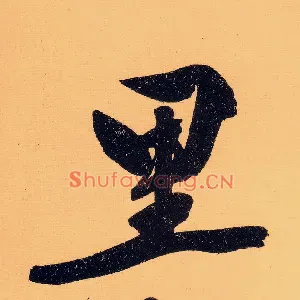 里
Shufawang.CN